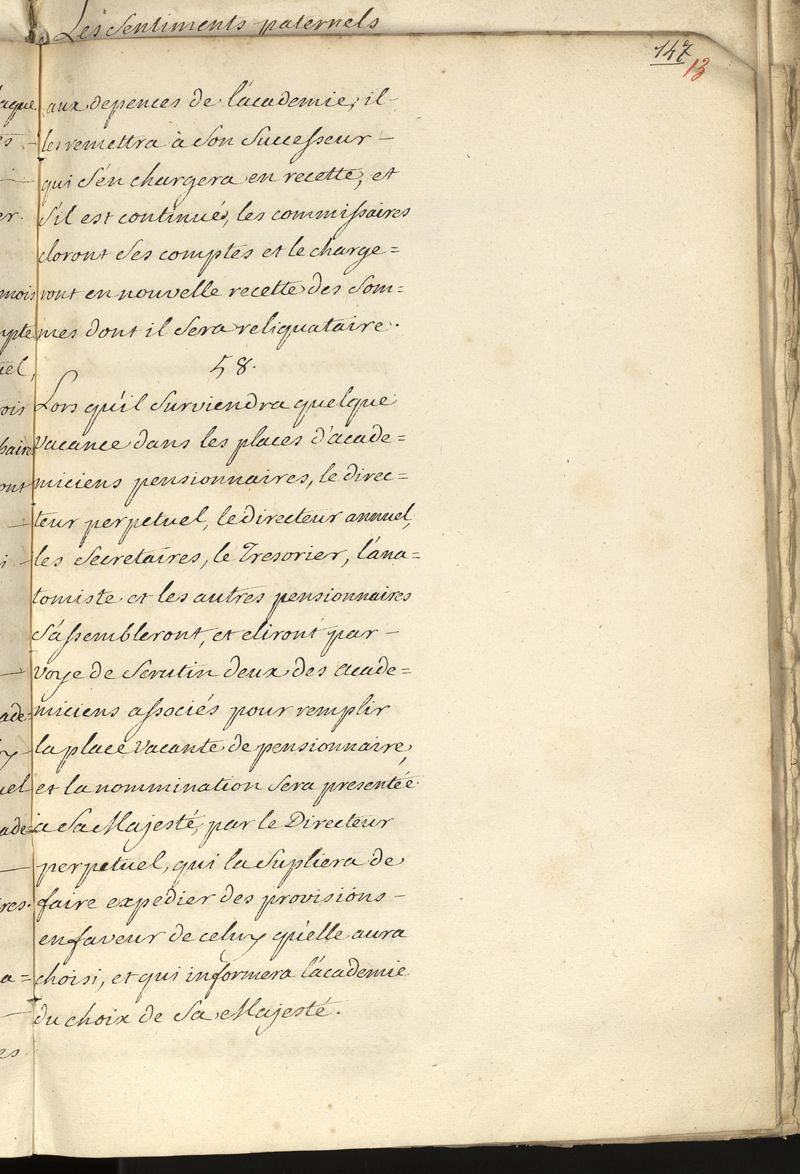 Les Sentiments paternels
147
13
aux depences de l'academie; il
les remettra à Son Successeur
qui S'en chargera en recette, et
S'il est continué, les commissaires
cloront Ses comptes et le charge=
ront en nouvelle recette des Som=
mes dont il Sera reliquataire.
58.
Lors qu'il Surviendra quelque
vacance dans les places d'acade=
miciens pensionnaires, le direc=
teur perpetuel, le directeur annuel,
les Secretaires, le Tresorier, l'ana=
tomiste et les autres pensionnaires
S'assembleront, et eliront par
voye de Scrutin deux des acade=
miciens associés pour remplir
la place vacante de pensionnaire,
et la nommination Sera presentée
a Sa Majesté, par le Directeur
perpetuel, qui la Supliera de
faire expedier des provisions
en faveur de celuy qu'elle aura
choisi, et qui informera l'academie
du choix de Sa Majesté.